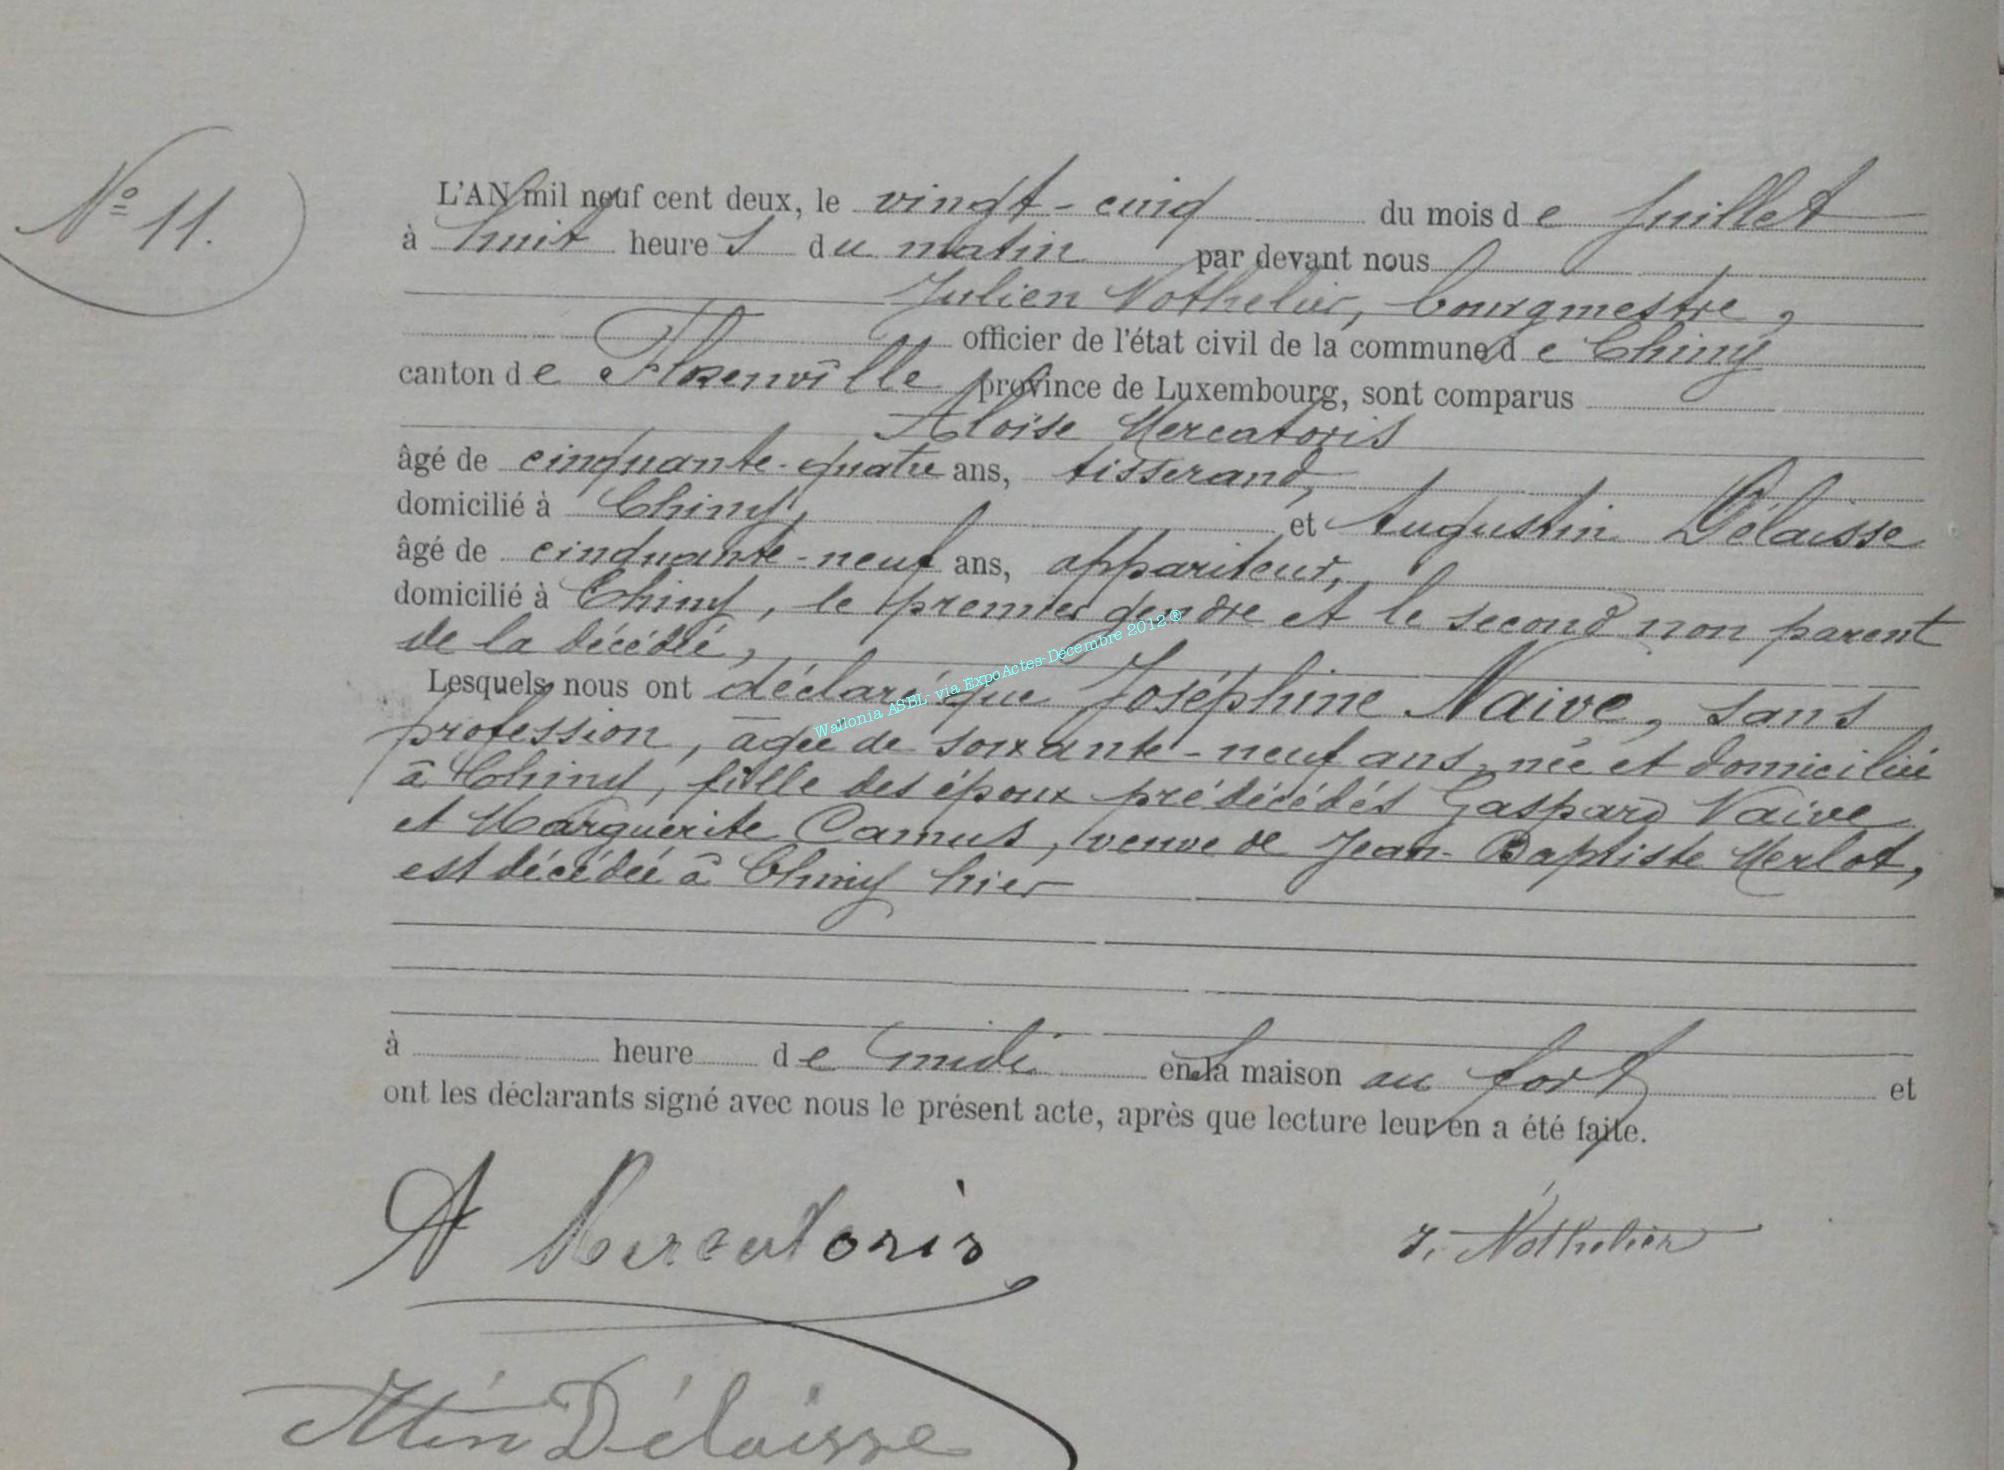 N° 11.
L'AN mil neuf cent deux, le vingt-cinq du mois de Juillet
à huit heures du matin par devant nous
Julien Nothelier, bourgmestre,
officier de l'état civil de la commune de Chiny
canton de Florenville province de Luxembourg, sont comparus
Aloïse Mercatoris
âgé de cinquante-quatre ans, tisserand,
domicilié à Chiny, et Augustin Délaisse
âgé de cinquante-neuf ans, appariteur,
domicilié à Chiny, le premier gendre et le second non parent
de la décédée,
Lesquels nous ont déclaré que Joséphine Naive, sans
profession, âgée de soixante-neuf ans, née et domiciliée
à Chiny, fille des époux prédécédés Gaspard Naive
et Marguerite Camus, veuve de Jean-Baptiste Merlot,
est décédée à Chiny hier
à heure de midi en la maison au fort et
ont les déclarants signé avec nous le présent acte, après que lecture leur en a été faite.
A Mercatoris
J. Nothelier
Atin Délaisse
Wallonia ASBL- via ExpoActes-Décembre 2012 ®